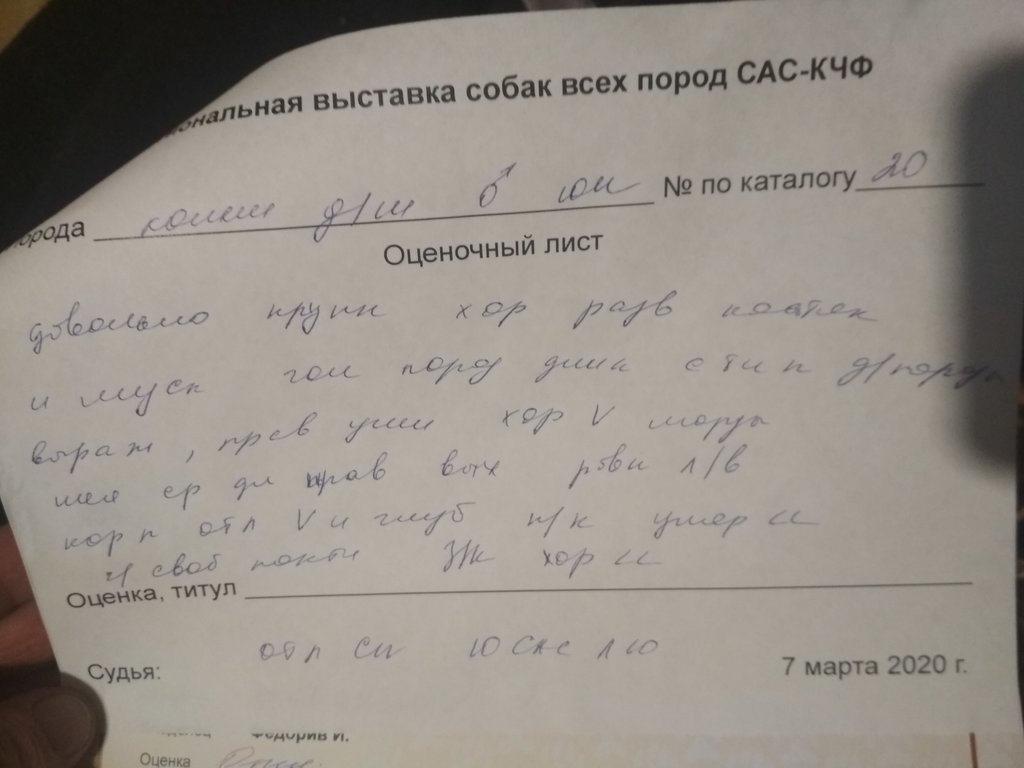 ональная выставка собак всех пород САС-КЧФ
орода колли д/ш ♂ юн № по каталогу 20
Оценочный лист
довольно крупн хор разв костяк
и муск гол пород длин с тип д/пород
выраж, прав уши хор V морды
шея ср дл прав вых ровн л/в
корп отл V и глуб п/к умер
и своб З/к хор
Оценка, титул
отл CW ЮСАС ЛЮ
Судья:
7 марта 2020 г.
Федорив И.
Оценка